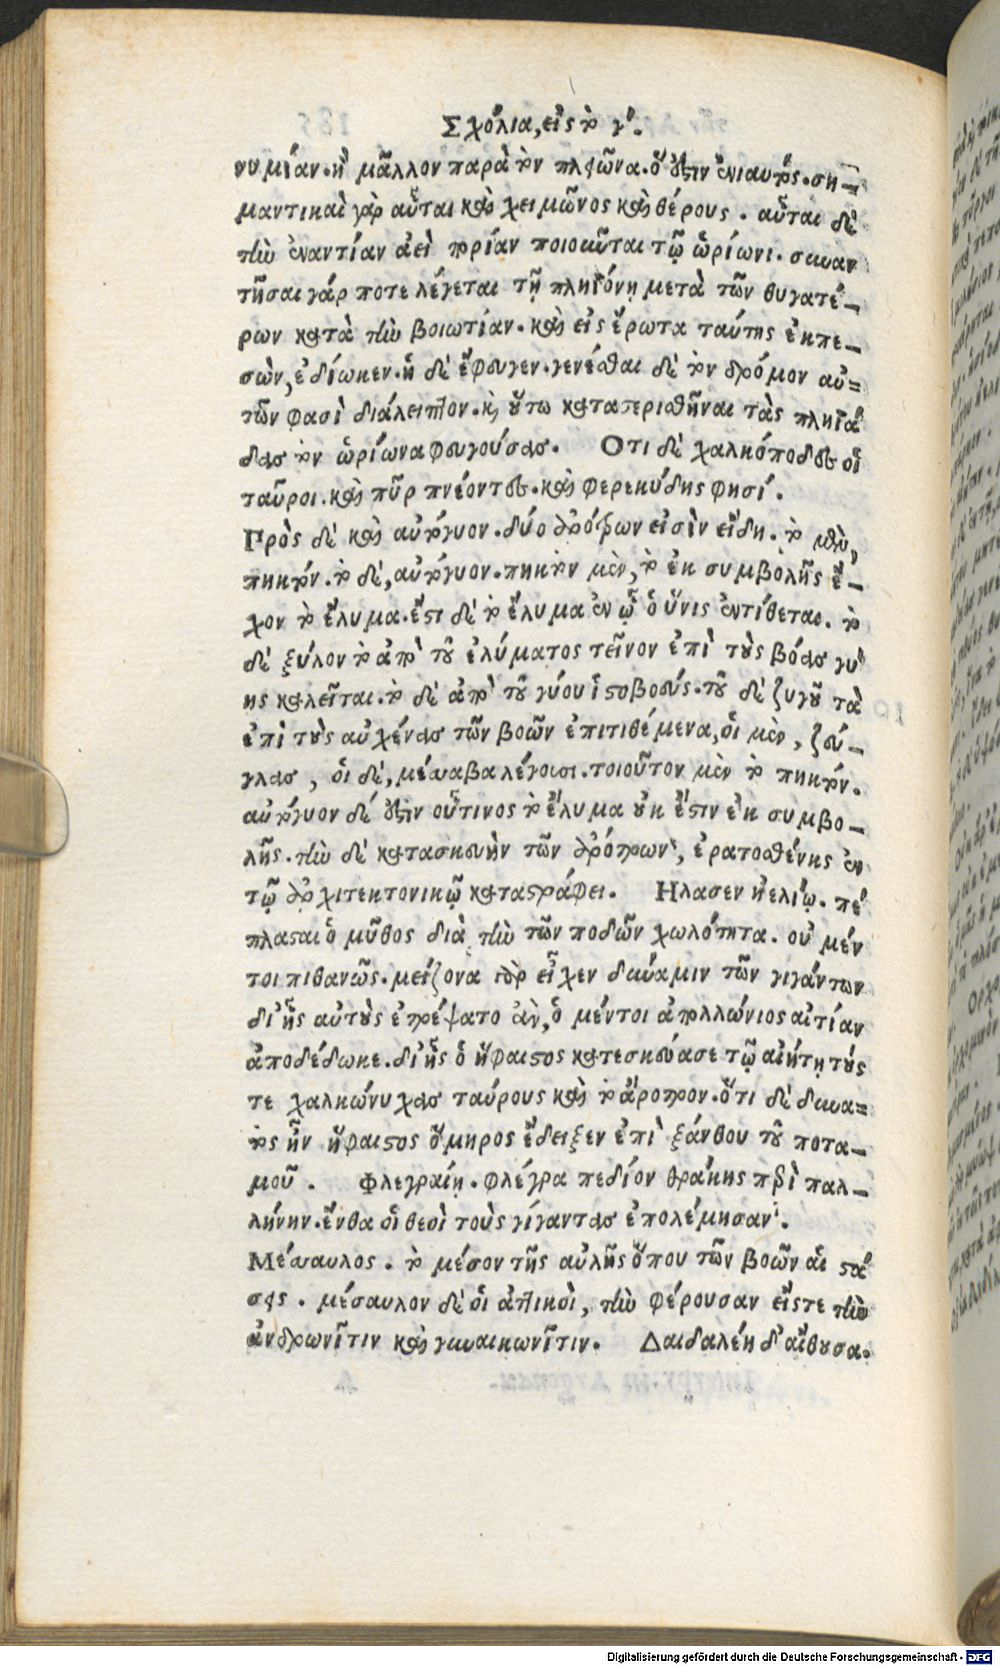 Σχόλια, εἰς τὸ γ΄.
νυμίαν. ἢ μᾶλλον παρὰ τὸν πλειῶνα. ὅ ἐστιν ἐνιαυτός. ση-
μαντικαὶ γὰρ αὗται καὶ χειμῶνος καὶ θέρους. αὗται δὲ
τὴν ἐναντίαν ἀεὶ πορείαν ποιοῦνται τῷ ὠρίωνι. συναν
τῆσαι γάρ ποτε λέγεται τῇ πληϊόνῃ μετὰ τῶν θυγατέ-
ρων κατὰ τὴν βοιωτίαν. καὶ εἰς ἔρωτα ταύτης ἐκπε-
σὼν, ἐδίωκεν. ἡ δὲ ἔφευγεν. γενέσθαι δὲ τὸν δρόμον αὐ=
τῶν φασὶ διάλειπτον. καὶ οὕτω καταστερισθῆναι τὰς πληϊά
δας τὸν ὠρίωνα φευγούσας. Οτι δὲ χαλκόποδες οἱ
ταῦροι. καὶ πῦρ πνέοντες. καὶ φερεκύδης φησί.
Πρὸς δὲ καὶ αὐτόγυον. δύο ἀρότρων εἰσὶν εἴδη. τὸ μὲν,
πηκτόν. τὸ δὲ, αὐτόγυον. πηκτὸν μὲν, τὸ ἐκ συμβολῆς ἔ-
χον τὸ ἔλυμα. ἔστι δὲ τὸ ἔλυμα ἐν ᾧ ὁ ὕνις ἐντίθεται. τὸ
δὲ ξύλον τὸ ἀπὸ τοῦ ἐλύματος τεῖνον ἐπὶ τοὺς βόας γύ
ης καλεῖται. τὸ δὲ ἀπὸ τοῦ γύου ἱστοβοεύς. τοῦ δὲ ζυγοῦ τὰ
ἐπὶ τοὺς αὐχένας τῶν βοῶν ἐπιτιθέμενα, οἱ μὲν, ζεύ-
γλας, οἱ δὲ, μέσαβα λέγουσι. τοιοῦτον μὲν τὸ πηκτόν.
αὐτόγυον δέ ἐστιν οὗτινος τὸ ἔλυμα οὐκ ἔστιν ἐκ συμβο-
λῆς. τὴν δὲ κατασκευὴν τῶν ἀρότρων, ἐρατοσθένης ἐν
τῷ ἀρχιτεκτονικῷ καταγράφει. Ηλασεν ἠελίῳ. πέ
πλασται ὁ μῦθος διὰ τὴν τῶν ποδῶν χωλότητα. οὐ μέν
τοι πιθανῶς. μείζονα γὰρ εἶχεν δύναμιν τῶν γιγάντων
δι᾿ ἧς αὐτοὺς ἐτρέψατο ἀν, ὁ μέντοι ἀπολλώνιος αἰτίαν
ἀποδέδωκε. δι᾿ ἧς ὁ ἥφαιστος κατεσκεύασε τῷ αἰήτῃ τούς
τε χαλκώνυχας ταύρους καὶ τὸ ἄροτρον. ὅτι δὲ δυνα=
τὸς ἦν ἥφαιστος ὅμηρος ἔδειξεν ἐπὶ ξάνθου τοῦ ποτα-
μοῦ. Φλεγραίη. φλέγρα πεδίον θρᾴκης περὶ παλ-
λήνην. ἔνθα οἱ θεοὶ τοὺς γίγαντας ἐπολέμησαν.
Μέσαυλος. τὸ μέσον τῆς αὐλῆς ὅπου τῶν βοῶν αἱ στά
σεις. μέσαυλον δὲ οἱ ἀττικοὶ, τὴν φέρουσαν εἴς τε τὴν
ἀνδρωνῖτιν καὶ γυναικωνῖτιν. Δαιδαλέη δ᾿ αἴθουσα.
Digitalisierung gefördert durch die Deutsche Forschungsgemeinschaft - DFG